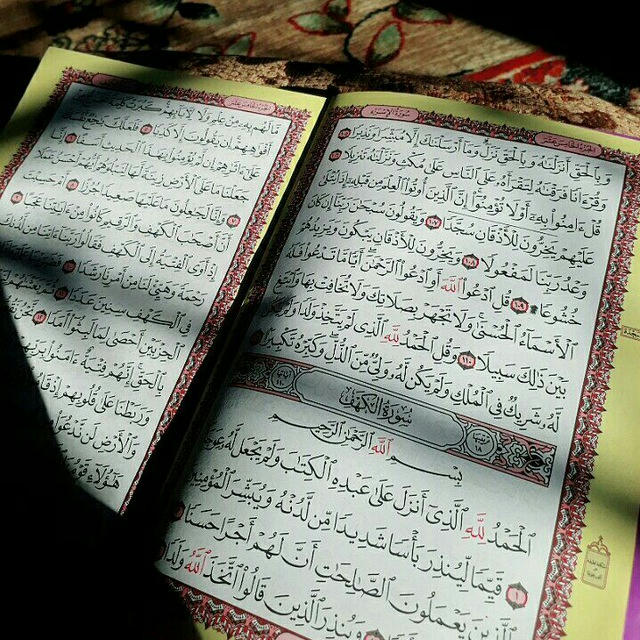 سُورَةُ الإِسْرَاءِ الجُزْءُ الخَامِسَ عَشَرَ
وَبِٱلْحَقِّ أَنزَلْنَٰهُ وَبِٱلْحَقِّ نَزَلَ وَمَآ أَرْسَلْنَٰكَ إِلَّا مُبَشِّرًا وَنَذِيرًا ١٠٥
وَقُرْءَانًا فَرَقْنَٰهُ لِتَقْرَأَهُۥ عَلَى ٱلنَّاسِ عَلَىٰ مُكْثٍ وَنَزَّلْنَٰهُ تَنزِيلًا ١٠٦
قُلْ ءَامِنُوا۟ بِهِۦٓ أَوْ لَا تُؤْمِنُوٓا۟ إِنَّ ٱلَّذِينَ أُوتُوا۟ ٱلْعِلْمَ مِن قَبْلِهِۦٓ إِذَا يُتْلَىٰ
عَلَيْهِمْ يَخِرُّونَ لِلْأَذْقَانِ سُجَّدًا ١٠٧ وَيَقُولُونَ سُبْحَٰنَ رَبِّنَآ إِن كَانَ
وَعْدُ رَبِّنَا لَمَفْعُولًا ١٠٨ وَيَخِرُّونَ لِلْأَذْقَانِ يَبْكُونَ وَيَزِيدُهُمْ
خُشُوعًا ١٠٩ قُلِ ٱدْعُوا۟ ٱللَّهَ أَوِ ٱدْعُوا۟ ٱلرَّحْمَٰنَ أَيًّا مَّا تَدْعُوا۟ فَلَهُ
ٱلْأَسْمَآءُ ٱلْحُسْنَىٰ وَلَا تَجْهَرْ بِصَلَاتِكَ وَلَا تُخَافِتْ بِهَا وَٱبْتَغِ
بَيْنَ ذَٰلِكَ سَبِيلًا ١١٠ وَقُلِ ٱلْحَمْدُ لِلَّهِ ٱلَّذِى لَمْ يَتَّخِذْ وَلَدًا وَلَمْ يَكُن
لَّهُۥ شَرِيكٌ فِى ٱلْمُلْكِ وَلَمْ يَكُن لَّهُۥ وَلِىٌّ مِّنَ ٱلذُّلِّ وَكَبِّرْهُ تَكْبِيرًۢا
سُورَةُ الكَهْفِ
بِسْمِ ٱللَّهِ ٱلرَّحْمَٰنِ ٱلرَّحِيمِ
ٱلْحَمْدُ لِلَّهِ ٱلَّذِىٓ أَنزَلَ عَلَىٰ عَبْدِهِ ٱلْكِتَٰبَ وَلَمْ يَجْعَل لَّهُۥ عِوَجَا
١ قَيِّمًا لِّيُنذِرَ بَأْسًا شَدِيدًا مِّن لَّدُنْهُ وَيُبَشِّرَ ٱلْمُؤْمِنِينَ
ٱلَّذِينَ يَعْمَلُونَ ٱلصَّٰلِحَٰتِ أَنَّ لَهُمْ أَجْرًا حَسَنًا
وَيُنذِرَ ٱلَّذِينَ قَالُوا۟ ٱتَّخَذَ ٱللَّهُ وَلَدًا
الجُزْءُ الخَامِسَ عَشَرَ
مَّا لَهُم بِهِۦ مِنْ عِلْمٍ وَلَا لِـَٔابَآئِهِمْ كَبُرَتْ كَلِمَةً
أَفْوَٰهِهِمْ إِن يَقُولُونَ إِلَّا كَذِبًا ٥ فَلَعَلَّكَ بَٰخِعٌ نَّفْسَكَ
عَلَىٰٓ ءَاثَٰرِهِمْ إِن لَّمْ يُؤْمِنُوا۟ بِهَٰذَا ٱلْحَدِيثِ أَسَفًا ٦ إِنَّا
جَعَلْنَا مَا عَلَى ٱلْأَرْضِ زِينَةً لَّهَا لِنَبْلُوَهُمْ أَيُّهُمْ أَحْسَنُ عَمَلًا
٧ وَإِنَّا لَجَٰعِلُونَ مَا عَلَيْهَا صَعِيدًا جُرُزًا ٨ أَمْ حَسِبْتَ
أَنَّ أَصْحَٰبَ ٱلْكَهْفِ وَٱلرَّقِيمِ كَانُوا۟ مِنْ ءَايَٰتِنَا عَجَبًا ٩
إِذْ أَوَى ٱلْفِتْيَةُ إِلَى ٱلْكَهْفِ فَقَالُوا۟ رَبَّنَآ ءَاتِنَا مِن لَّدُنكَ
رَحْمَةً وَهَيِّئْ لَنَا مِنْ أَمْرِنَا رَشَدًا ١٠
فِى ٱلْكَهْفِ سِنِينَ عَدَدًا ١١ ثُمَّ بَعَثْنَٰهُمْ
ٱلْحِزْبَيْنِ أَحْصَىٰ لِمَا لَبِثُوٓا۟ أَمَدًا ١٢ نَّحْنُ
بِٱلْحَقِّ إِنَّهُمْ فِتْيَةٌ ءَامَنُوا۟
وَرَبَطْنَا عَلَىٰ قُلُوبِهِمْ إِذْ قَامُوا۟
وَٱلْأَرْضِ لَن نَّدْعُوَا۟
هَٰٓؤُلَآءِ قَوْمُنَا